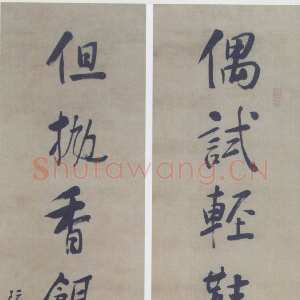 偶試輕鞋
但撥香餌
Shufawang.CN